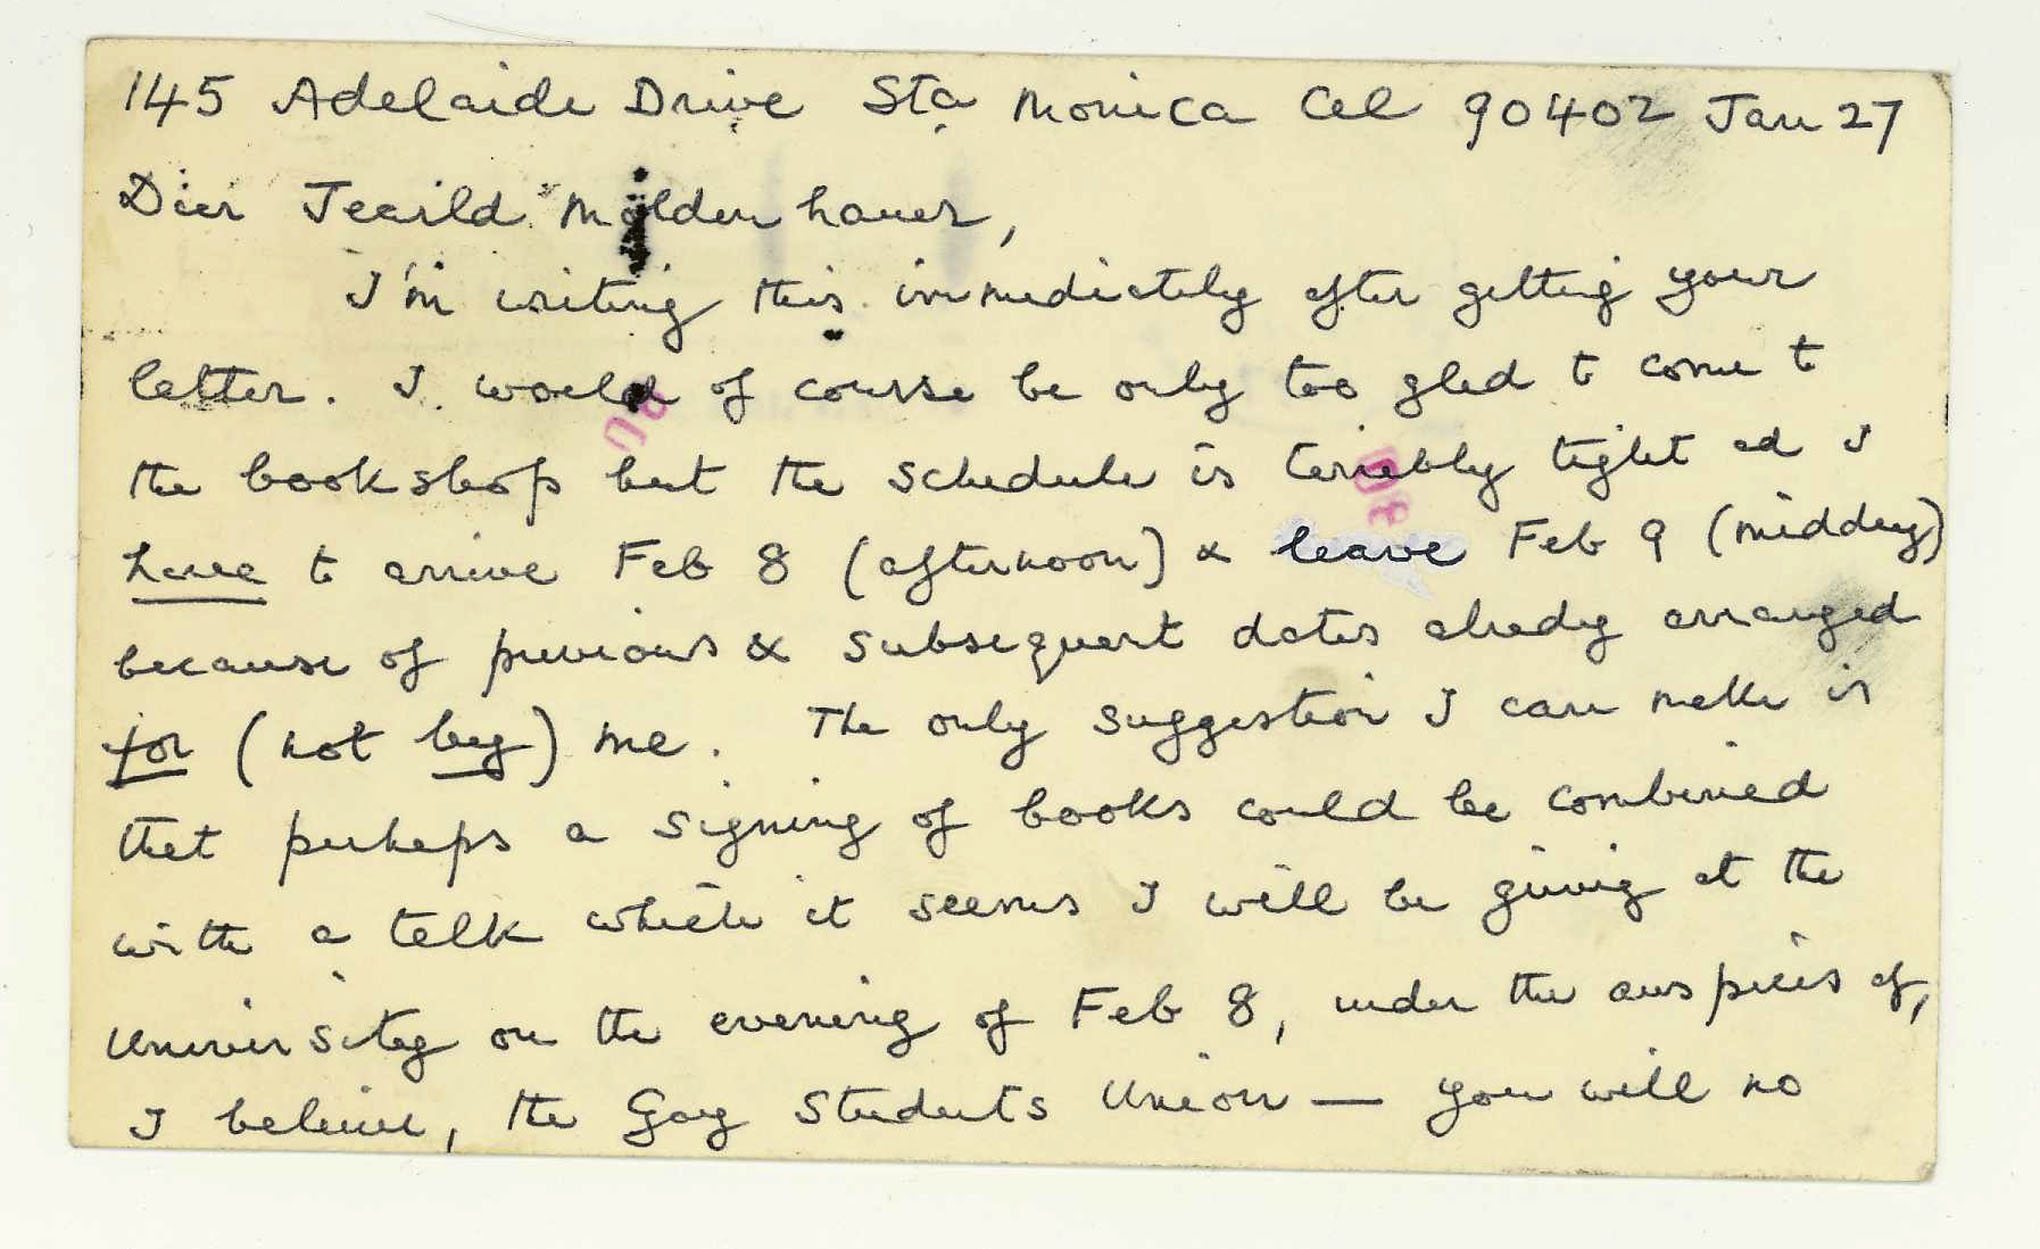 145 Adelaide Drive Sta Monica Cal 90402 Jan 27
Dear Jearld Moldenhauer,
I'm writing this immediately after getting your
letter. I would of course be only too glad to come to
the bookshop but the schedule is terribly tight ad I
have to arrive Feb 8 (afternoon) & leave Feb 9 (midday)
because of previous & subsequent dates already arranged
for (not by) me. The only suggestion I can make is
that perhaps a signing of books could be combined
with a talk which it seems I will be giving at the
University on the evening of Feb 8, under the auspices of,
I believe, the Gay Students Union — you will no